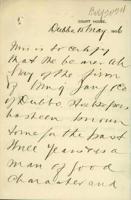 COURT HOUSE,
Dubbo 15 May 1906
This is to certify
that the bearer Ah
of the firm
of
of Dubbo Storekeepers
has been known
to me for the past
three years as a
man of good
character and